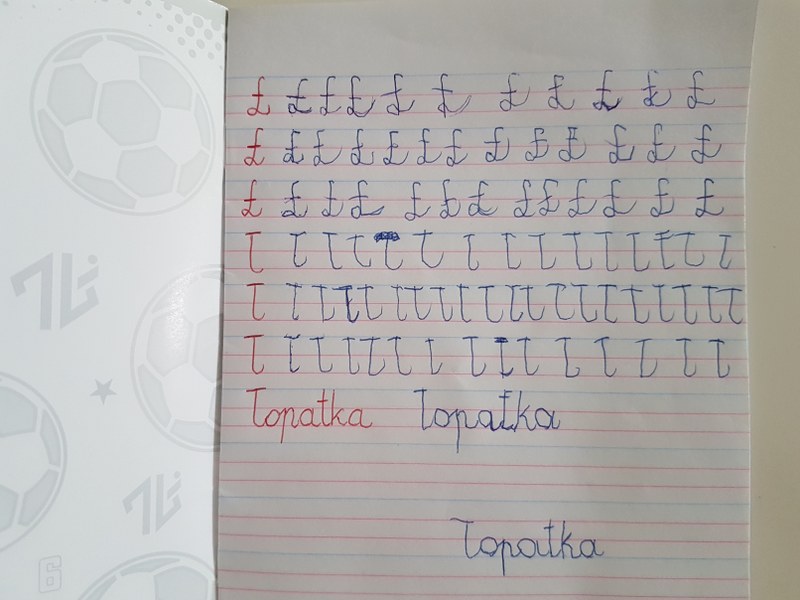 Ł Ł Ł Ł Ł Ł Ł Ł Ł Ł Ł
Ł Ł Ł Ł Ł Ł Ł Ł Ł Ł Ł Ł Ł
Ł Ł Ł Ł Ł Ł Ł Ł Ł Ł Ł Ł Ł
ł ł ł ł ł ł ł ł ł ł ł ł ł ł ł
ł ł ł ł ł ł ł ł ł ł ł ł ł ł ł ł ł ł ł ł
ł ł ł ł ł ł ł ł ł ł ł ł ł ł ł
łopatka łopatka
łopatka